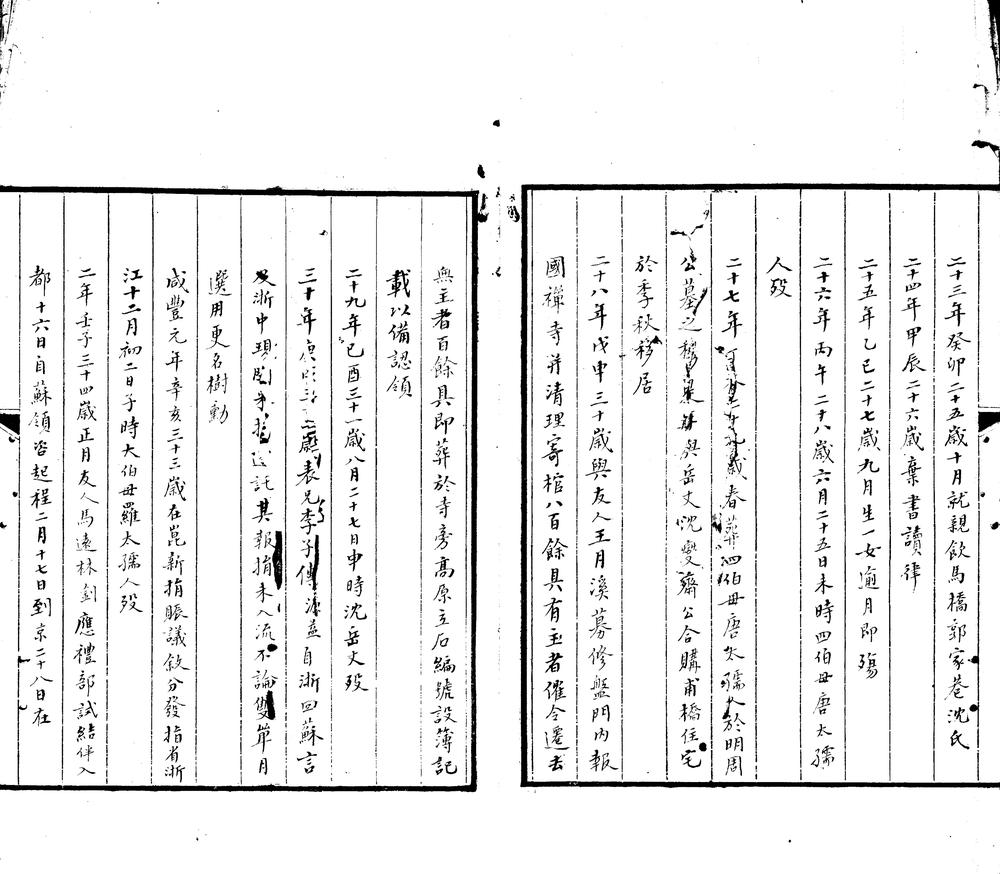 二十三年癸卯二十五歲十月就親飲馬橋郭家巷沈氏
二十四年甲辰二十六歲棄書讀律
二十五年乙巳二十七歲九月生一女逾月即殤
二十六年丙午二十八歲六月二十五日未時四伯母唐太孺
人歿
二十七年歲春葬四伯母唐太孺人於明周
公墓之穆與岳丈沈燮齋公合購甫橋住宅
於季秋移居
二十八年戊申三十歲與友人王月溪募修盤門內報
國禪寺并清理寄棺八百餘具有主者催令遷去
無主者百餘具即葬於寺旁高原立石編號設簿記
載以備認領
二十九年己酉三十一歲八月二十七日申時沈岳丈歿
三十年庚表兄李子傳自浙回蘇言
及浙中現開託其報捐未入流不論雙單月
選用更名樹勳
咸豐元年辛亥三十三歲在崑新捐賑議敘分發指省浙
江十二月初二日子時大伯母羅太孺人歿
二年壬子三十四歲正月友人馬遠林釗應禮部試結伴入
都十六日自蘇領咨起程二月十七日到京二十八日在